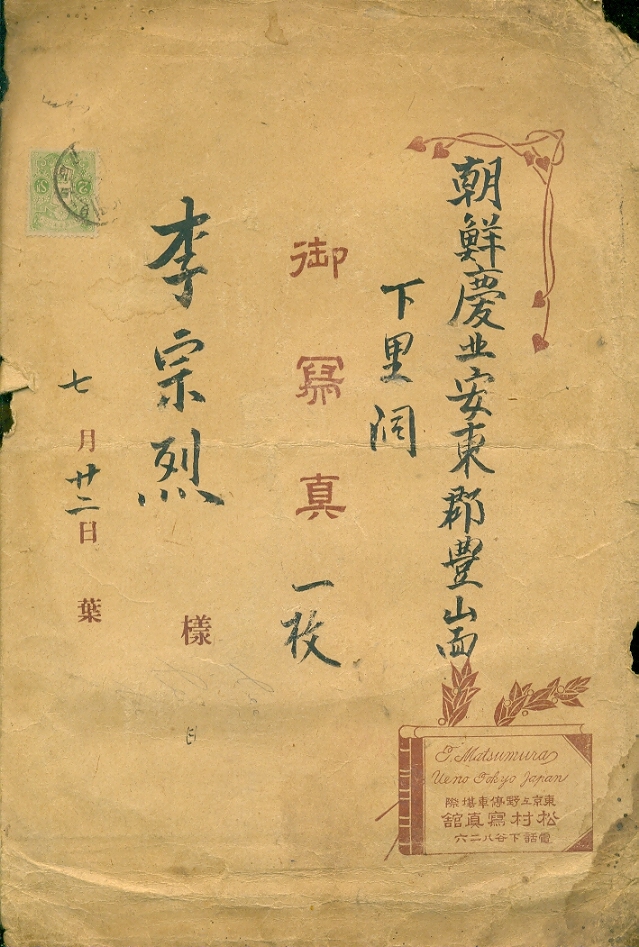 朝鮮慶北安東郡豊山面
下里洞
御寫真一枚
李宗烈様
七月廿二日 葉
T. Matsumura
Ueno Tokyo Japan
東京上野停車場際
松村寫真館
電話下谷八二六